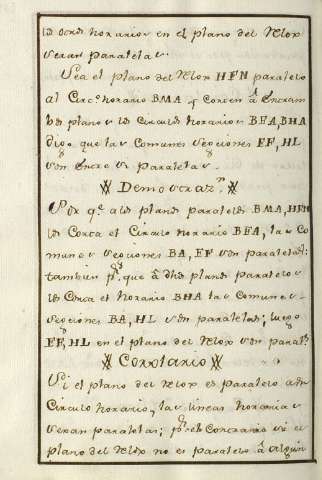 los otros horarios en el plano del Relox
seran paralelas.
Sea el plano del Relox HFN paralelo
al Circo. horario BMA, q corten â entram
bos planos los Circulos horarios BFA, BHA
digo que las Comunes Secciones EF, HL
son entre si paralelas.
Demostrazn.
Por qe. alos planos paralelos BMA, HFN
los Corta el Circulo horario BFA, las Co
munes Secciones BA, EF son paralelas:
tambien pr. que â dhos planos paralelos
los Corta el horario BHA las Comunes
Secciones BA, HL son paralelas; luego
EF, HL en el plano del Relox son parals.
Corolario
Si el plano del Relox es paralelo aun
Circulo horario, las lineas horarias
seran paralelas; pr. el Contrario si el
plano del Relox no es paralelo â algun